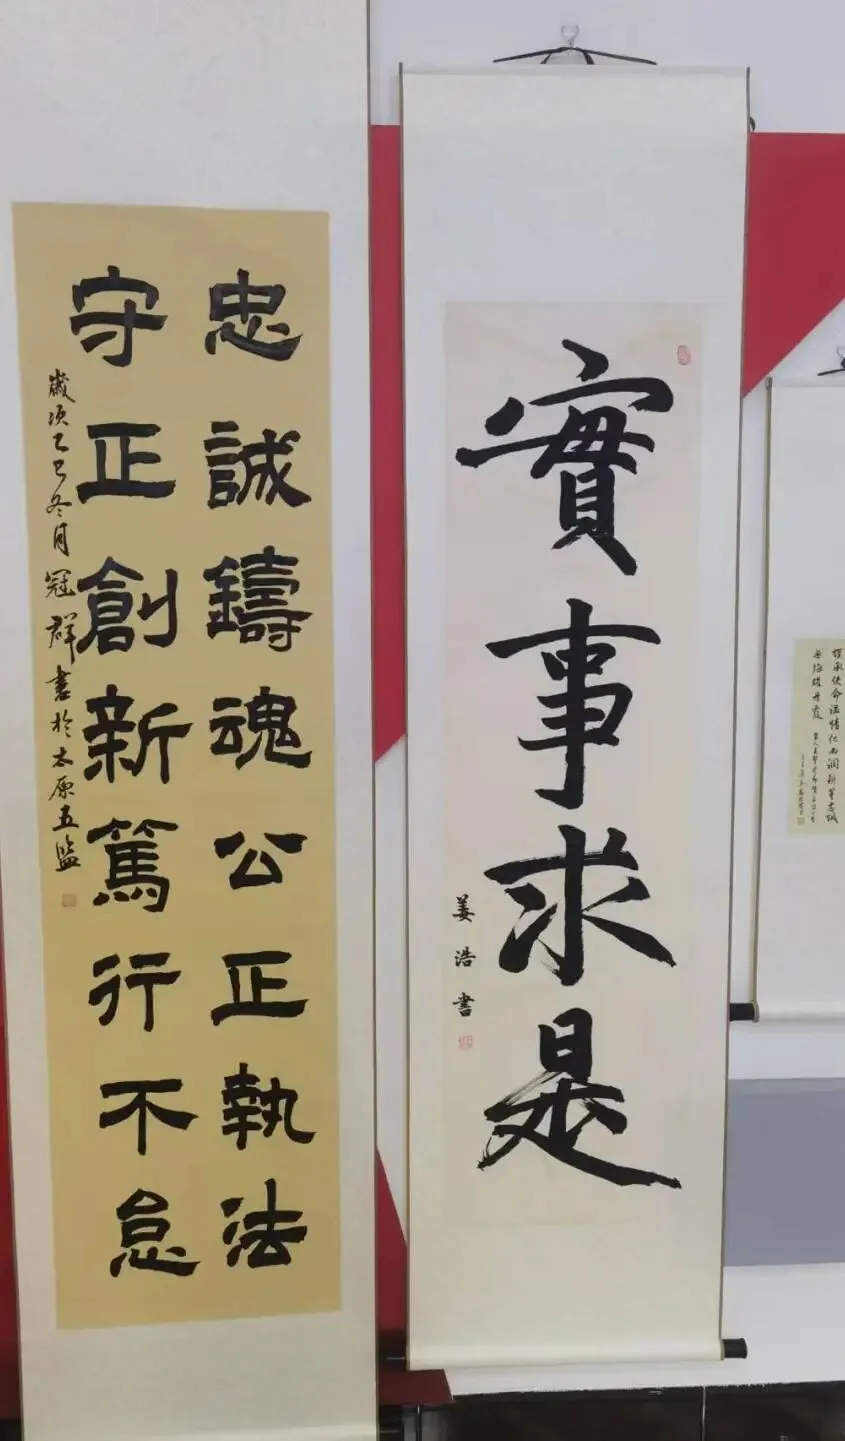 忠誠鑄魂公正執法
守正創新篤行不怠
歲次乙巳冬月冠群書於太原五監
實事求是
姜浩書